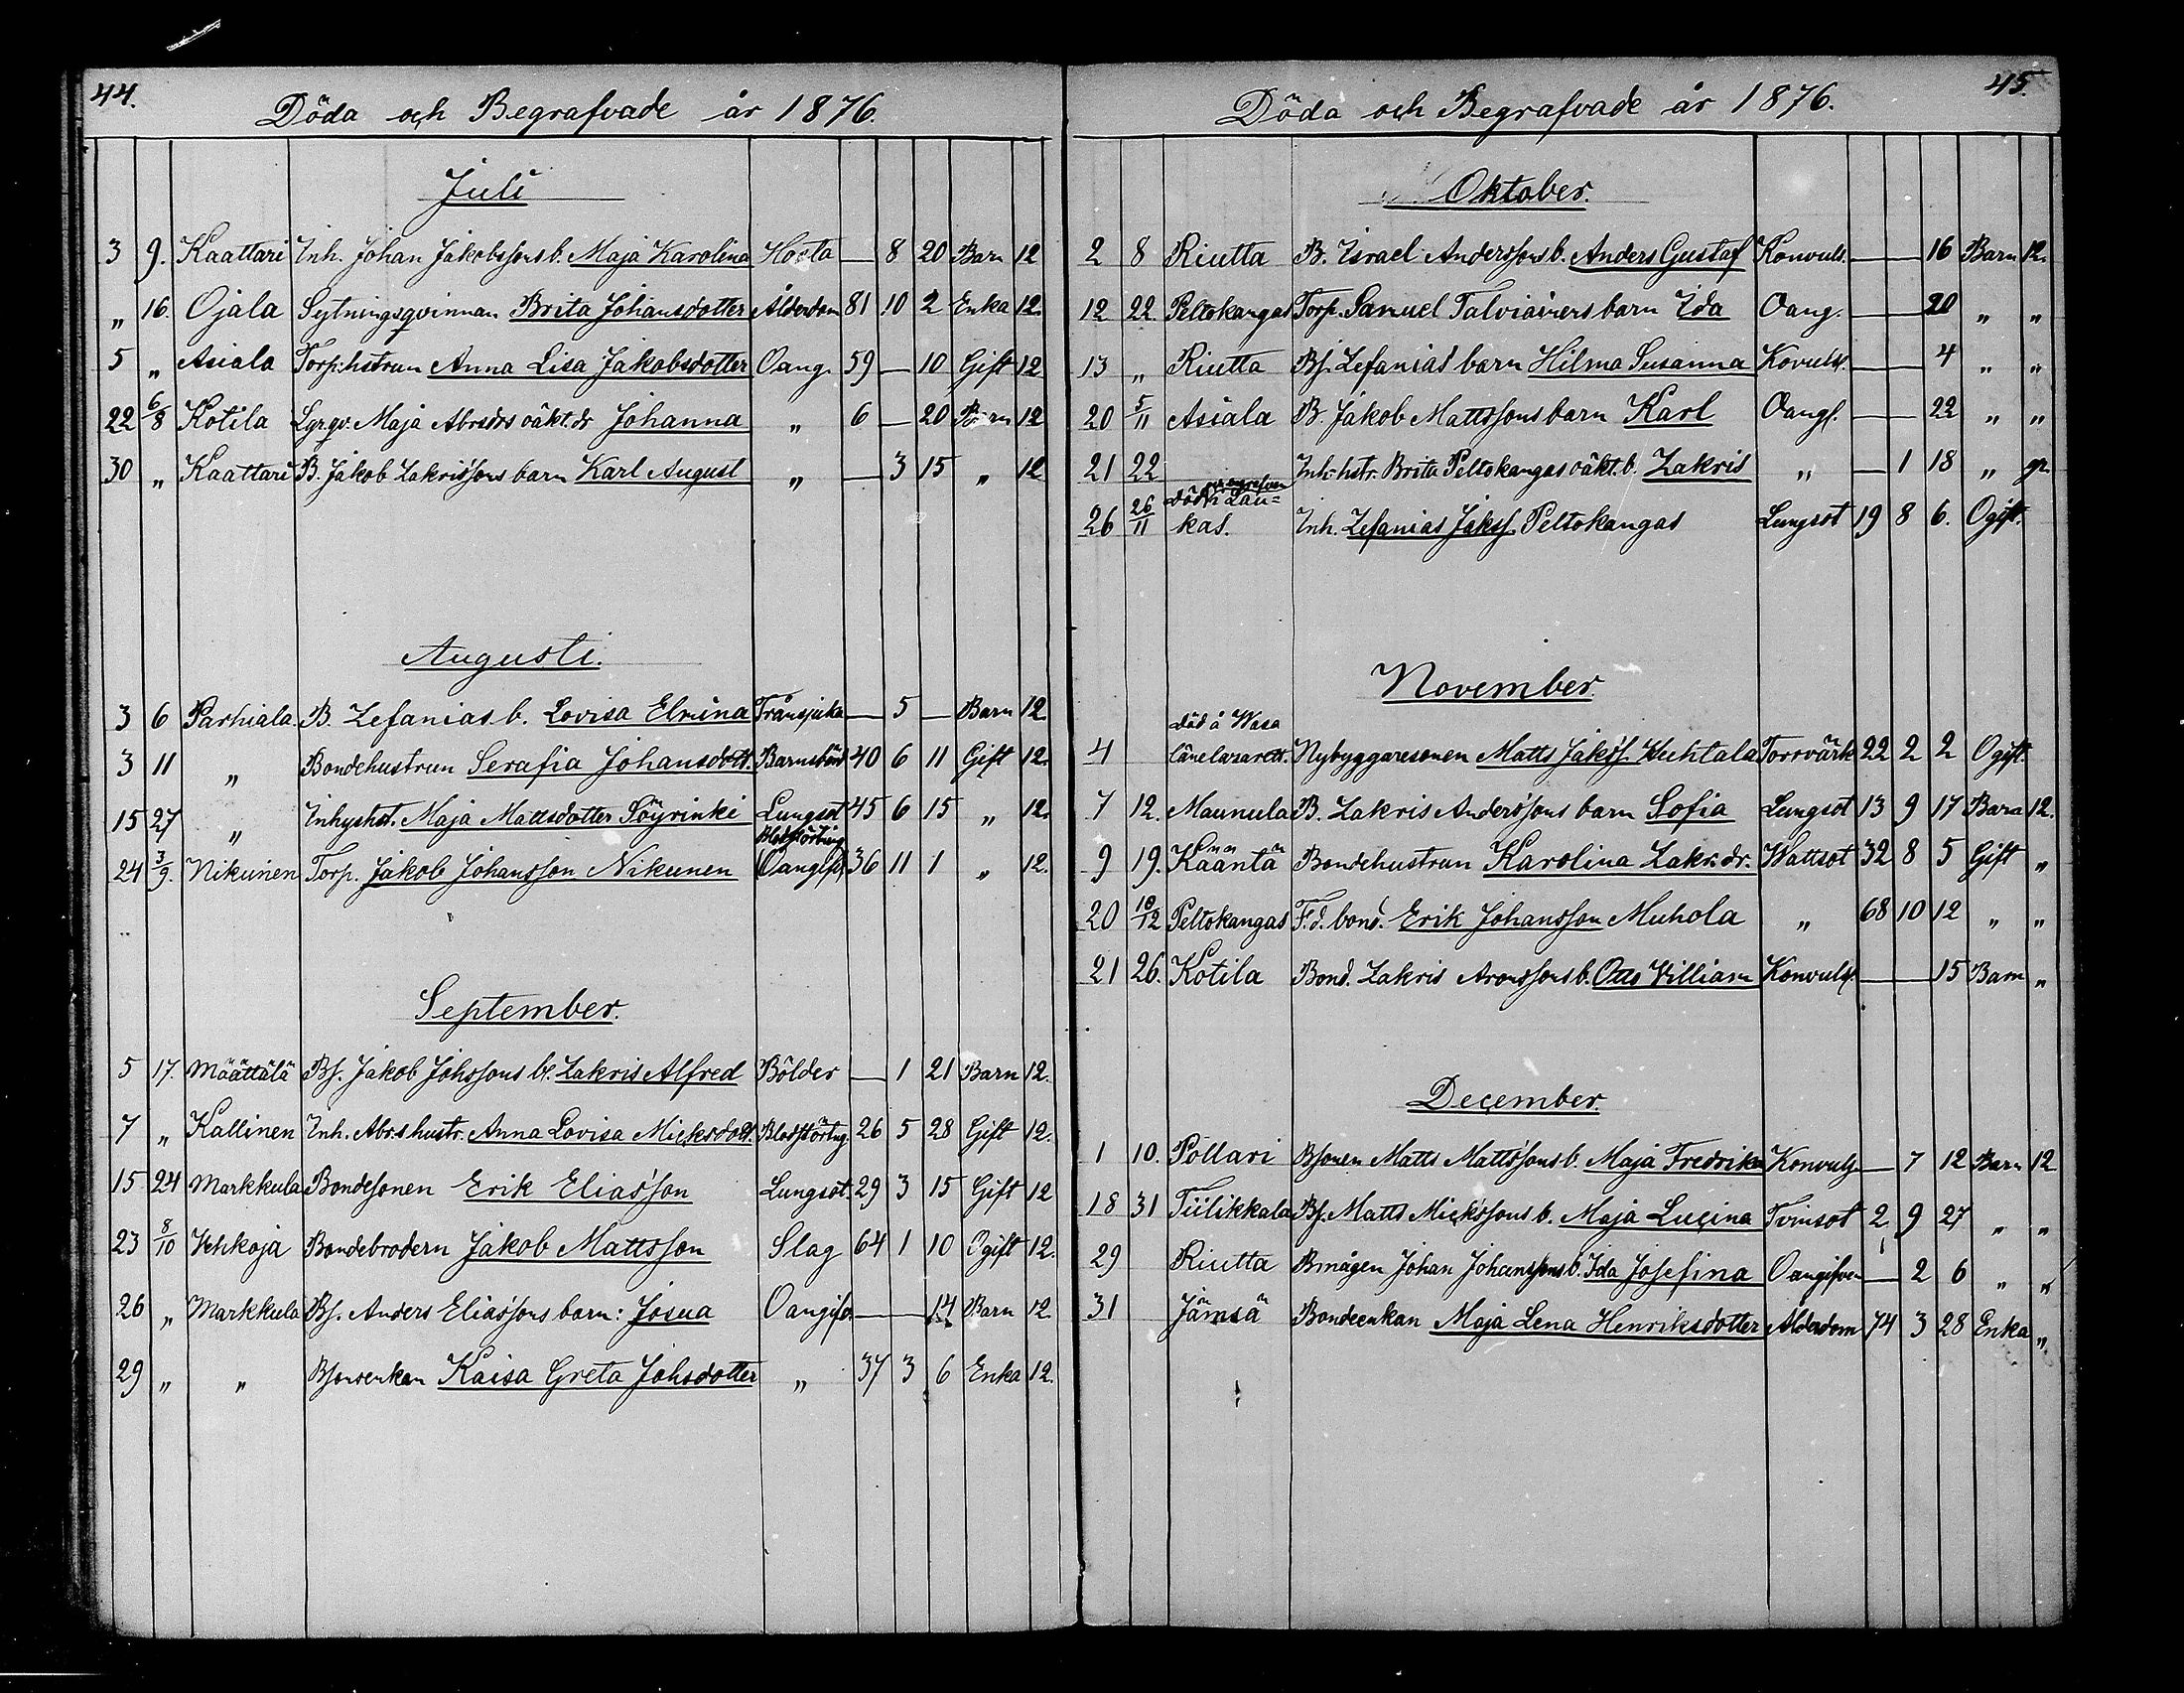 44.
Döda och Begrafvade år 1876.
Juli
3 9. Kaattari Inh. Johan Jakobssons b. Maja Karolina Hosta — 8 20 Barn 12
„ 16. Ojala Sytningsqvinnan Brita Johansdotter Ålderdom 81 10 2 Enka 12.
5 „ Asiala Torp:hstrun Anna Lisa Jakobsdotter Oang. 59 — 10 Gift 12
22 6/8 Kotila Lgrqv. Maja Abrsdrs oäkt. dr Johanna „ 6 — 20 Barn 12
30 „ Kaattari B. Jakob Zakrissons barn Karl August „ — 3 15 „ 12
Augusti.
3 6 Parhiala. B. Zefanias b. Lovisa Elmina Trånsjuka — 5 — Barn 12.
3 11 „ Bondehustrun Serafia Johansdott. Barnsbörd 40 6 11 Gift 12.
15 27 „ Inhyshst. Maja Mattsdotter Söyrinki Lungsot 45 6 15 „ 12.
Blodstörtning
24 3/9. Nikunen Torp. Jakob Johansson Nikunen Oangifv. 36 11 1 „ 12.
September.
5 17. Määttälä Bs. Jakob Johssons b. Zakris Alfred Bölder — 1 21 Barn 12.
7 „ Kallinen Inh. Abr:s hustr. Anna Lovisa Micksdott. Blodstörtng. 26 5 28 Gift 12.
15 24 Markkula Bondesonen Erik Eliasson Lungsot. 29 3 15 Gift 12
23 8/10 Vehkoja Bondebrodern Jakob Mattsson Slag 64 1 10 Ogift 12.
26 „ Markkula Bs. Anders Eliassons barn: Josua Oangifv. — — 14 Barn 12.
29 „ „ Bsonenkan Kaisa Greta Johsdotter „ 37 3 6 Enka 12.
45.
Döda och Begrafvade år 1876.
Oktober.
2 8 Riutta B. Israel Anderssons b. Anders Gustaf Konvuls. — — 16 Barn 12.
12 22. Peltokangas Torp. Samuel Talviainens barn Ida Oang. — — 20 „ „
13 „ Riutta Bs. Zefanias barn Hilma Susanna Kovuls. — — 4 „ „
20 5/11 Asiala B. Jakob Mattssons barn Karl Oangf. — — 22 „ „
21 22 Inh:hstr. Brita Peltokangas oäkt. b. Zakris „ — 1 18 „ gr.
Död i Lau=
26 26/11 kas. Inh. Zefanias Jakss. Peltokangas Lungsot 19 8 6. Ogift.
November.
död å Wasa
4 länelazarett. Nybyggaresonen Matts Jakss. Huhtala Torrvärk 22 2 2 Ogift.
7 12. Maunula B. Zakris Anderssons barn Sofia Lungsot 13 9 17 Barn 12.
9 19. Kääntä Bondehustrun Karolina Zakr:dr. Wattsot 32 8 5 Gift „
20 10/12 Peltokangas F.d. bond. Erik Johansson Muhola „ 68 10 12 „ „
21 26. Kotila Bond. Zakris Aronssons b. Otto Villiam Konvuls. — — 15 Barn „
December.
1 10. Pollari Bsonen Matts Mattssons b. Maja Fredrika Konvuls — 7 12 Barn 12
18 31 Tiilikkala Bs. Matts Mickssons b. Maja Lucina Tvinsot 2 9 27 „ „
29 Riutta Bmågen Johan Johanssons b. Ida Josefina Oangifven — 2 6 „ „
31 Jämsä Bondeenkan Maja Lena Henriksdotter Ålderdom 74 3 28 Enka „